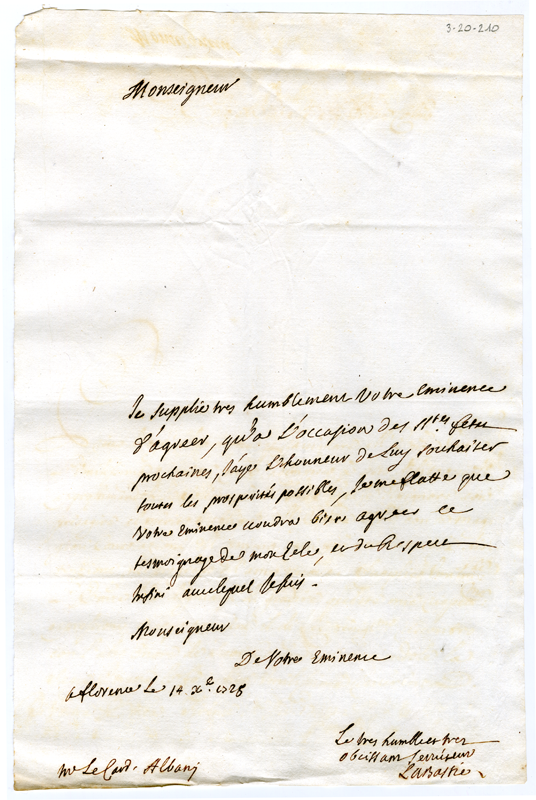 3-20-210
Monseigneur
Je supplie tres humblement Votre Eminence
d'agreer, qu'a L'occasion des Stes fetes
prochaines, J'aye L'honneur de Luy souhaiter
toutes les prosperités possibles, Je me flatte que
Votre Eminence voudra bien agreer ce
tesmoignage de mon Zele, et du Respect
infini avec lequel Je suis.
Monseigneur
De Votre Eminence
a florence Le 14 Xe. 1728
Le tres humble et tres
obeissant serviteur
LaBastie
Mr Le Card. Albanj